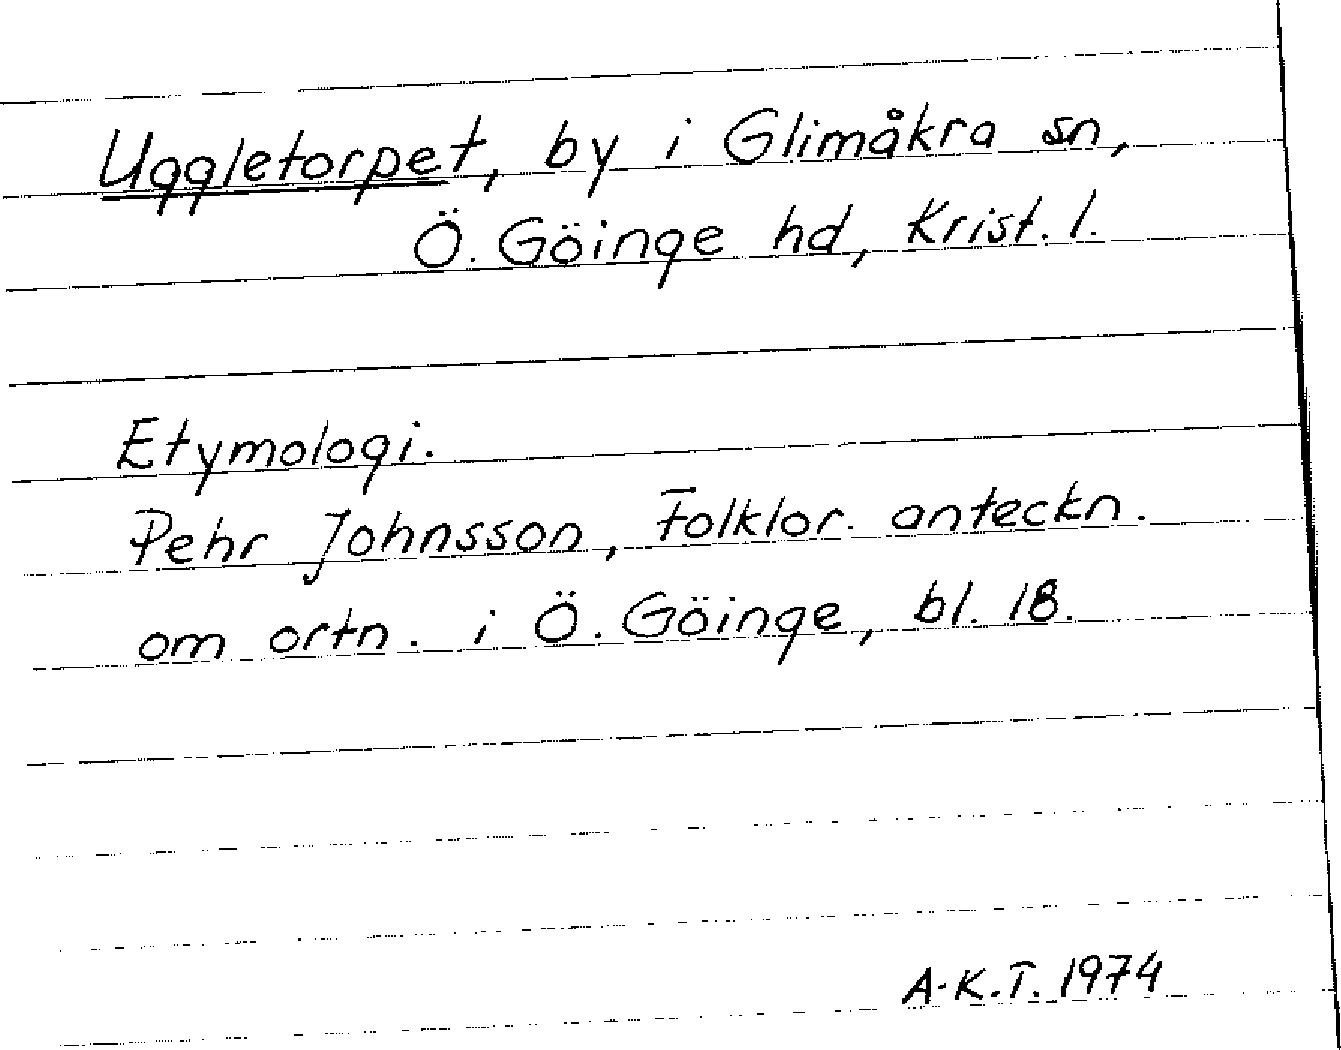 Uggletorpet, by i Glimåkra sn,
Ö. Göinge hd, Krist. l.
Etymologi.
Pehr Johnsson, Folklor. anteckn.
om ortn. i Ö. Göinge, bl. 18.
A-K.T. 1974